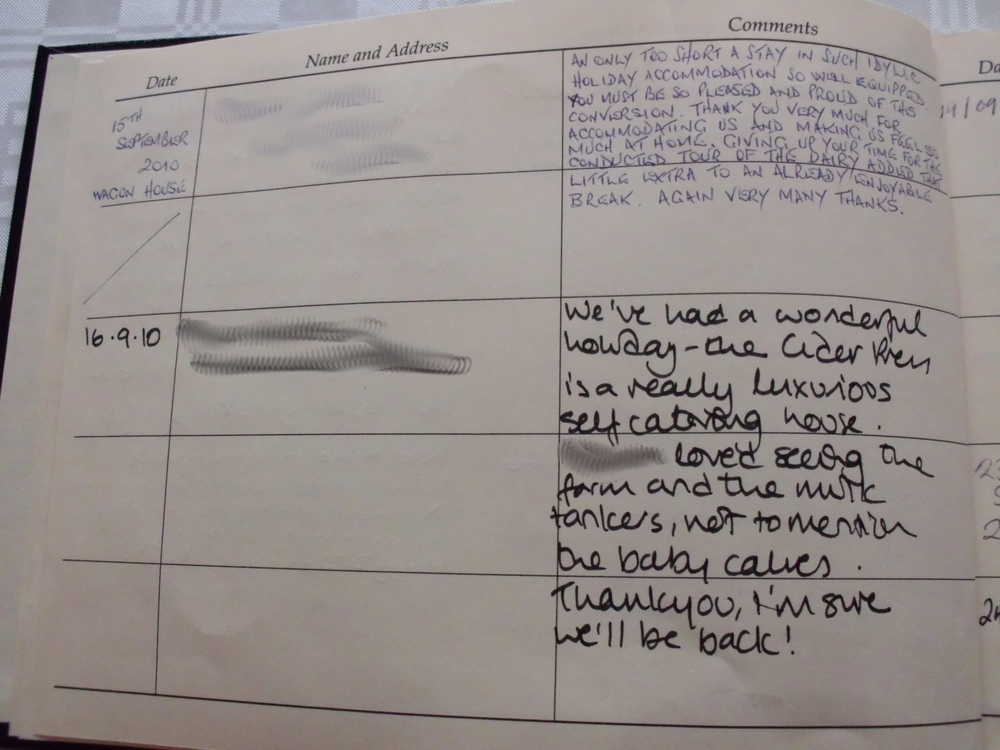 Date
Name and Address
Comments
15TH
SEPTEMBER
2010
WAGON HOUSE
AN ONLY TOO SHORT A STAY IN SUCH IDYLIC
HOLIDAY ACCOMMODATION SO WELL EQUIPPED.
YOU MUST BE SO PLEASED AND PROUD OF THIS
CONVERSION. THANK YOU VERY MUCH FOR
ACCOMMODATING US AND MAKING US FEEL SO
MUCH AT HOME. GIVING UP YOUR TIME FOR THE
CONDUCTED TOUR OF THE DAIRY ADDED THAT
LITTLE EXTRA TO AN ALREADY ENJOYABLE
BREAK. AGAIN VERY MANY THANKS.
16.9.10
We've had a wonderful
holiday - the Cider Press
is a really luxurious
self catering house.
loved seeing the
farm and the milk
tankers, not to mention
the baby calves.
Thankyou, I'm sure
we'll be back!
Da